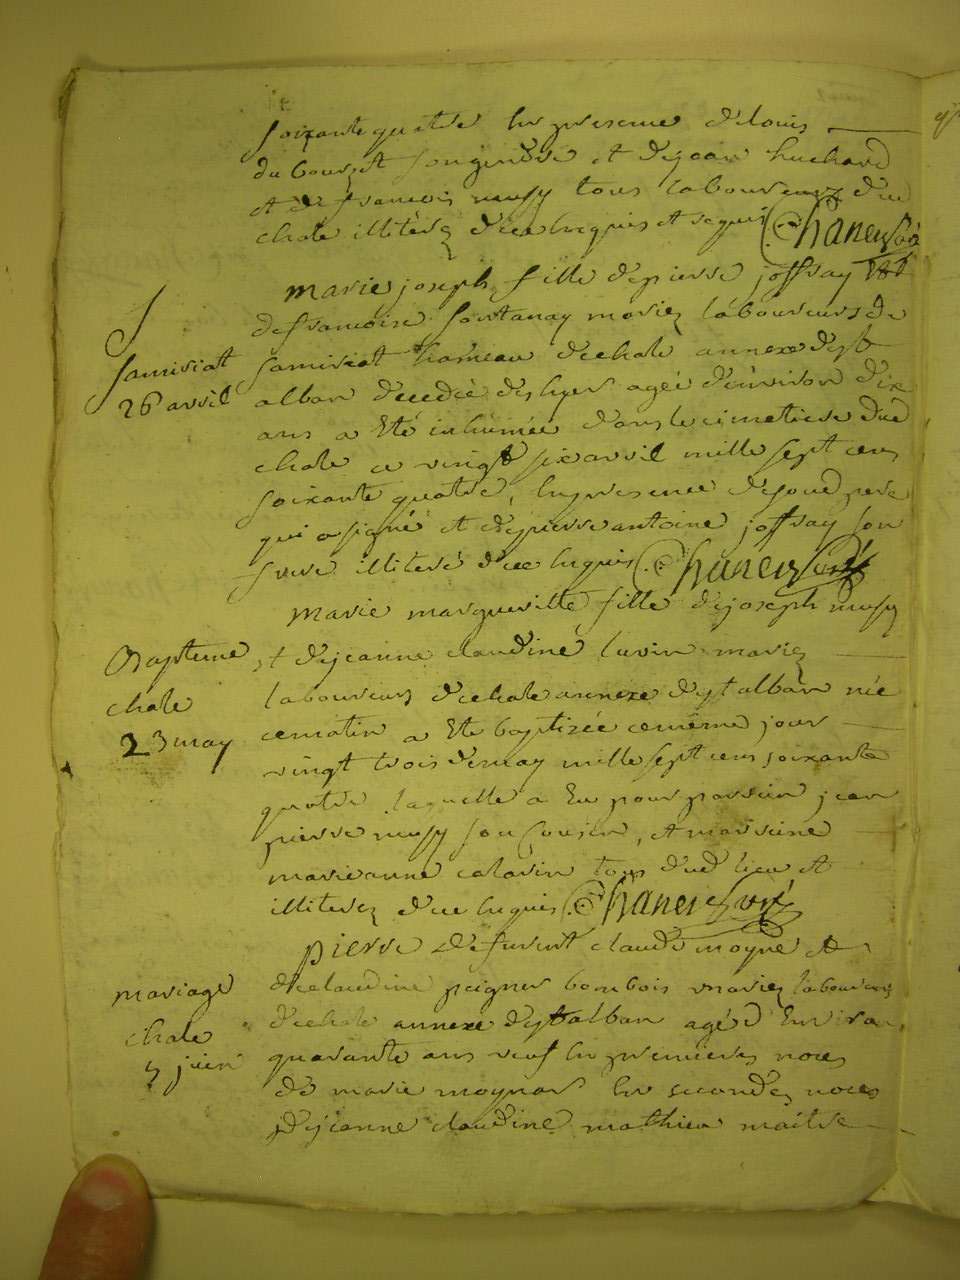 soixante quatre en presence de louis
du bourget son gendre et de jean huchard
et de francois musy tous laboureurs dud
chale illiterez de ce enquis et requis Chaney curé
marie joseph fille de pierre joffray et
de francoise fontanay mariez laboureurs de
samisiat hameau de chale annexe de st
alban decedée des hyer agée d'environ dix
ans a eté inhumée dans le cimetiere dud
chale ce vingt six avril mille sept cens
soixante quatre, en presence de soud pere
qui a signé et de pierre antoine joffray son
frere illiteré de ce enquis Chaney curé
samisiat
26 avril
marie margueritte fille de joseph musy
et de jeanne claudine mariez
laboureurs de chale annexe de st alban née
ce matin a ete baptizée ce même jour
vingt trois de may mille sept cens soixante
quatre laquelle a eu pour parrein jean
pierre musy son cousin, et marreine
marie anne tous dud lieu et
illiterez de ce enquis Chaney curé
Bapteme
chale
23 may
pierre de furent claude moyne et
de claudine bombois mariez laboureurs
de chale annexe de st alban agé d'environ
quarante ans veuf en premieres noces
de marie en secondes noces
de jeanne claudine mathieu maitre
mariage
chale
5 juin